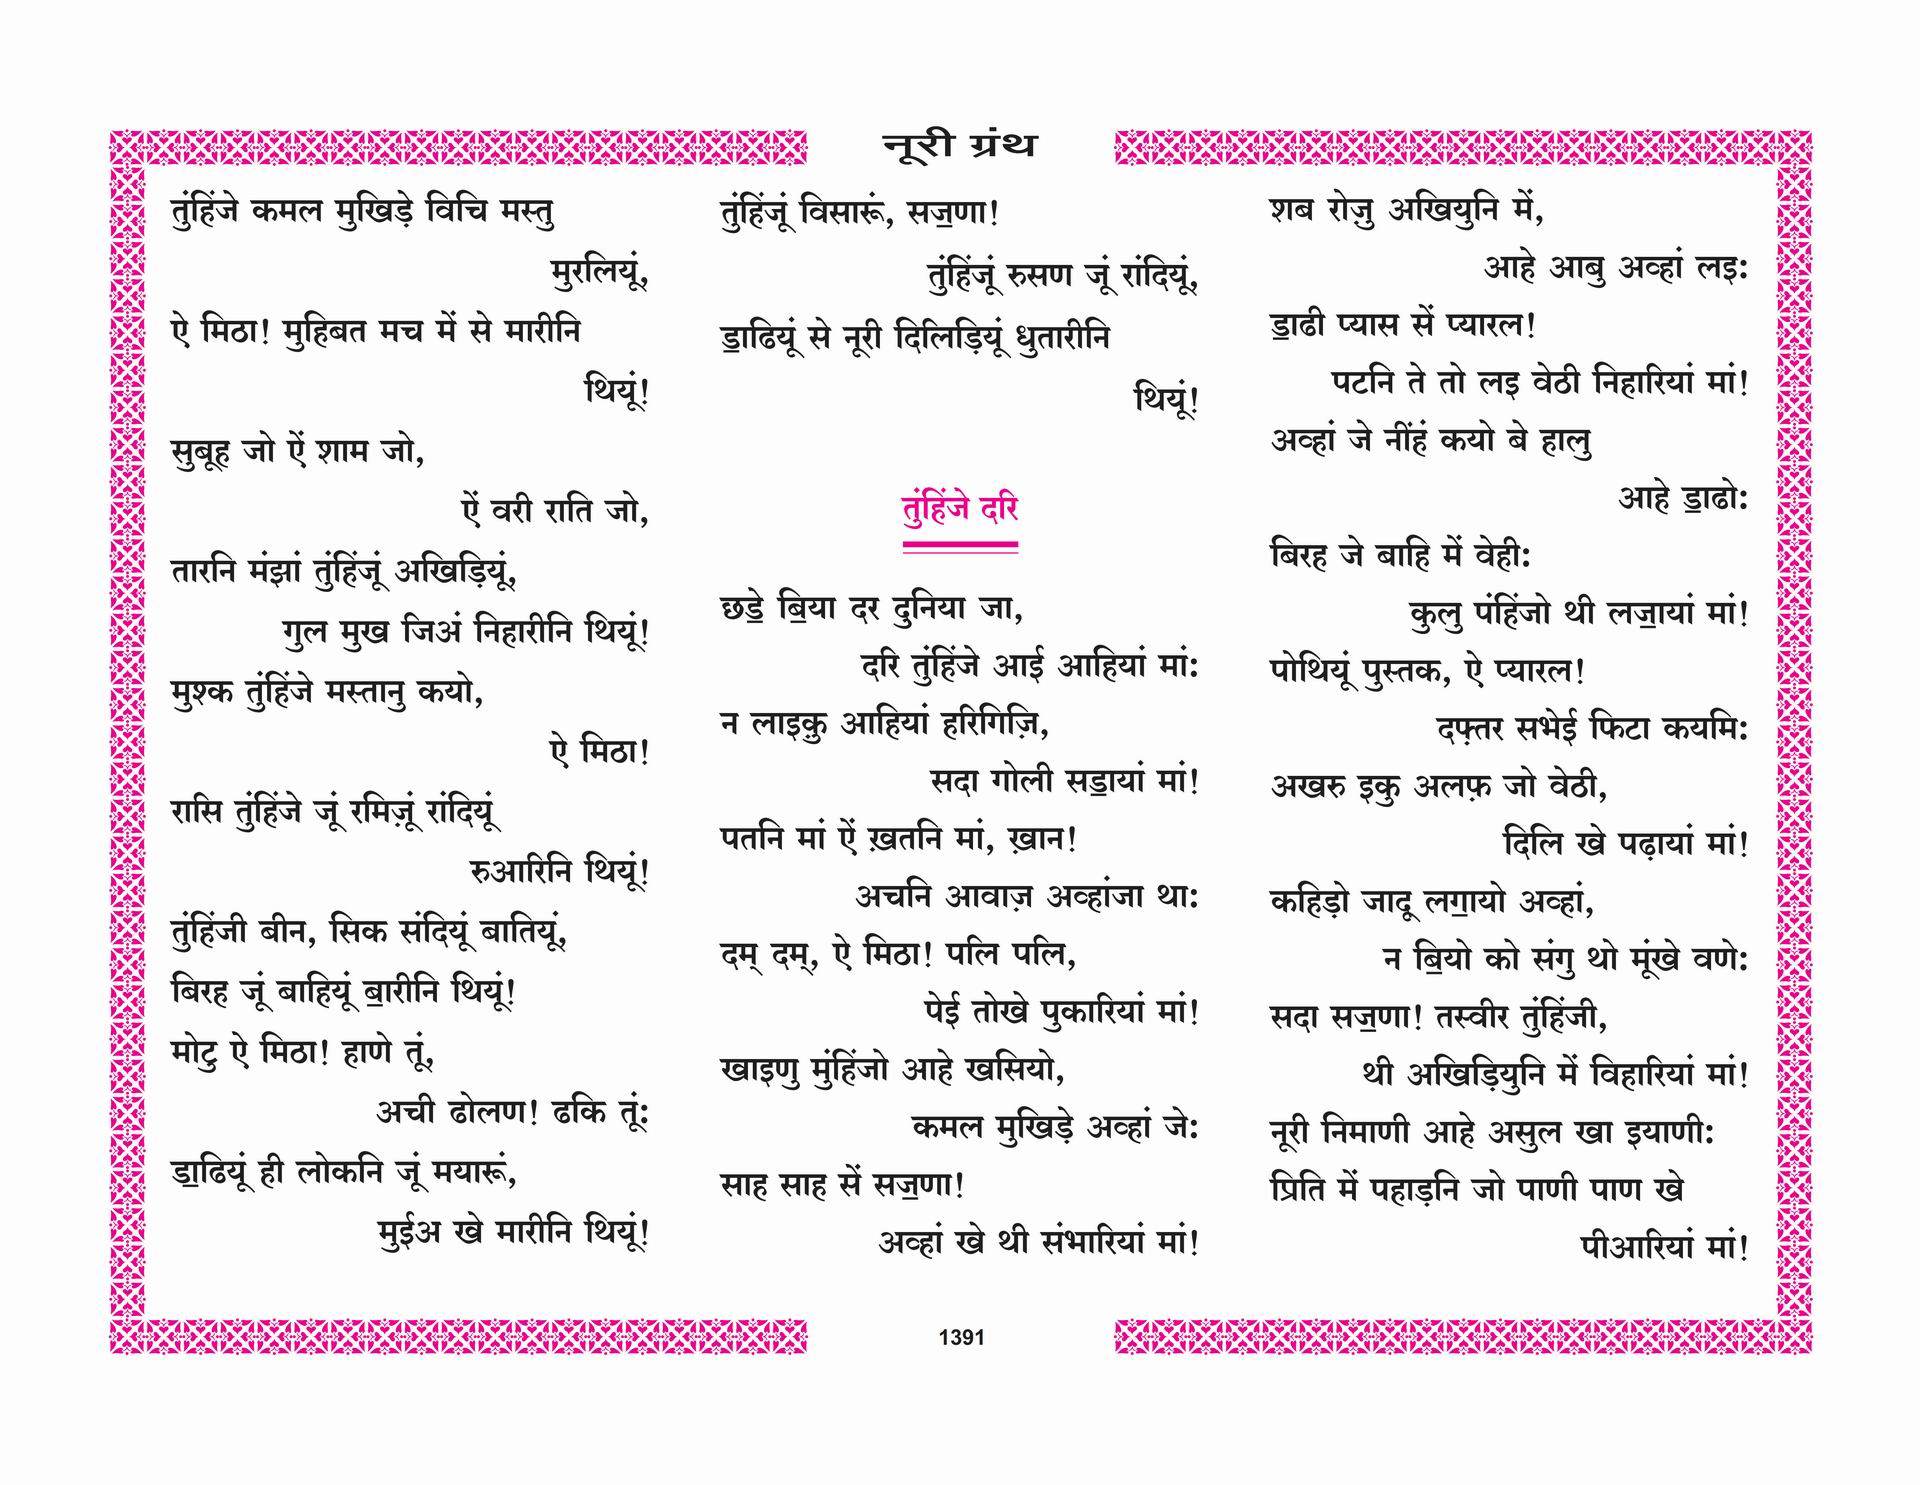 नूरी ग्रंथ
तुंहिंजे कमल मुखिड़े विचि मस्तु
मुरलियूं,
ऐ मिठा! मुहिबत मच में से मारीनि
थियूं!
सुबूह जो ऐं शाम जो,
ऐं वरी राति जो,
तारनि मंझां तुंहिंजूं अखिड़ियूं,
गुल मुख जिअं निहारीनि थियूं!
मुश्क तुंहिंजे मस्तानु कयो,
ऐ मिठा!
रासि तुंहिंजे जूं रमिज़ूं रांदियूं
रुआरिनि थियूं!
तुंहिंजी बीन, सिक संदियूं बातियूं,
बिरह जूं बाहियूं ॿारीनि थियूं!
मोटु ऐ मिठा! हाणे तूं,
अची ढोलण! ढकि तूं:
ॾाढियूं ही लोकनि जूं मयारूं,
मुईअ खे मारीनि थियूं!
तुंहिंजूं विसारूं, सॼणा!
तुंहिंजूं रुसण जूं रांदियूं,
ॾाढियूं से नूरी दिलिड़ियूं धुतारीनि
थियूं!
तुंहिंजे दरि
छॾे ॿिया दर दुनिया जा,
दरि तुंहिंजे आई आहियां मां:
न लाइक़ु आहियां हरिगिज़ि,
सदा गोली सॾायां मां!
पतनि मां ऐं ख़तनि मां, ख़ान!
अचनि आवाज़ अव्हांजा था:
दम् दम्, ऐ मिठा! पलि पलि,
पेई तोखे पुकारियां मां!
खाइणु मुंहिंजो आहे खसियो,
कमल मुखिड़े अव्हां जे:
साह साह सें सॼणा!
अव्हां खे थी संभारियां मां!
शब रोज़ु अखियुनि में,
आहे आबु अव्हां लइ:
ॾाढी प्यास सें प्यारल!
पटनि ते तो लइ वेठी निहारियां मां!
अव्हां जे नींहं कयो बे हालु
आहे ॾाढो:
बिरह जे बाहि में वेही:
कुलु पंहिंजो थी लॼायां मां!
पोथियूं पुस्तक, ऐ प्यारल!
दफ़्तर सभेई फिटा कयमि:
अखरु इकु अलफ़ जो वेठी,
दिलि खे पढ़ायां मां!
कहिड़ो जादू लॻायो अव्हां,
न ॿियो को संगु थो मूंखे वणे:
सदा सॼणा! तस्वीर तुंहिंजी,
थी अखिड़ियुनि में विहारियां मां!
नूरी निमाणी आहे असुल खा इयाणी:
प्रिति में पहाड़नि जो पाणी पाण खे
पीआरियां मां!
1391